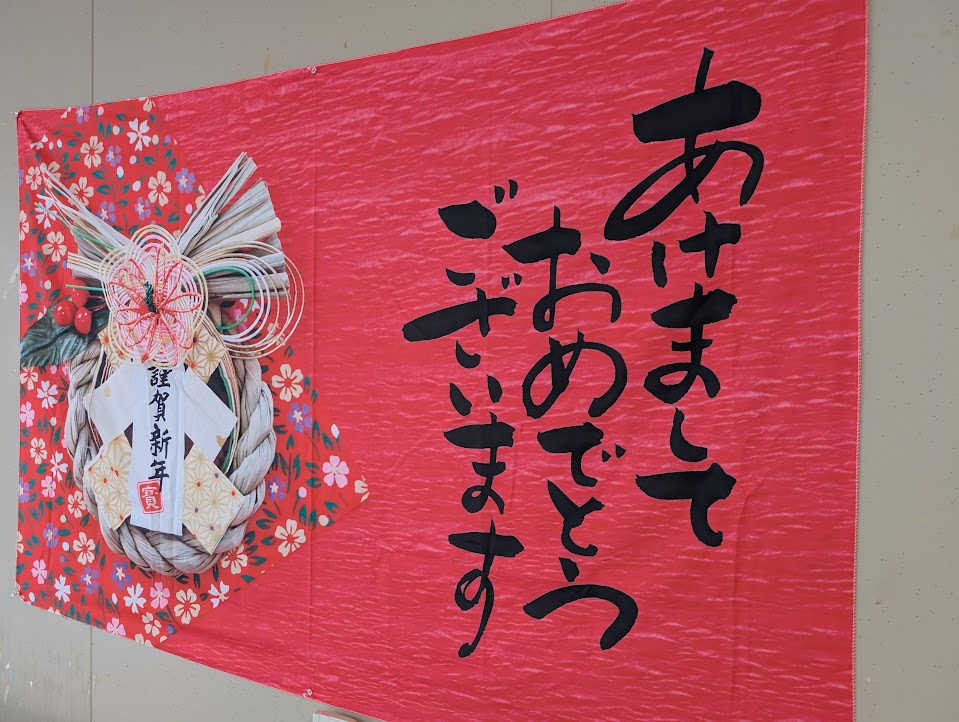 あけまして
おめでとう
ございます
謹賀新年
寳